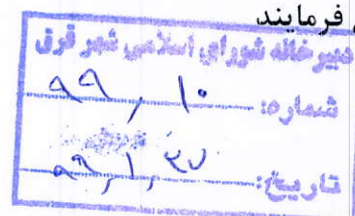 فرمایند
دبیرخانه شورای اسلامی شهر قرق
شماره: ۹۹, ۱۰
تاریخ: ۹۹,۱,۲۷